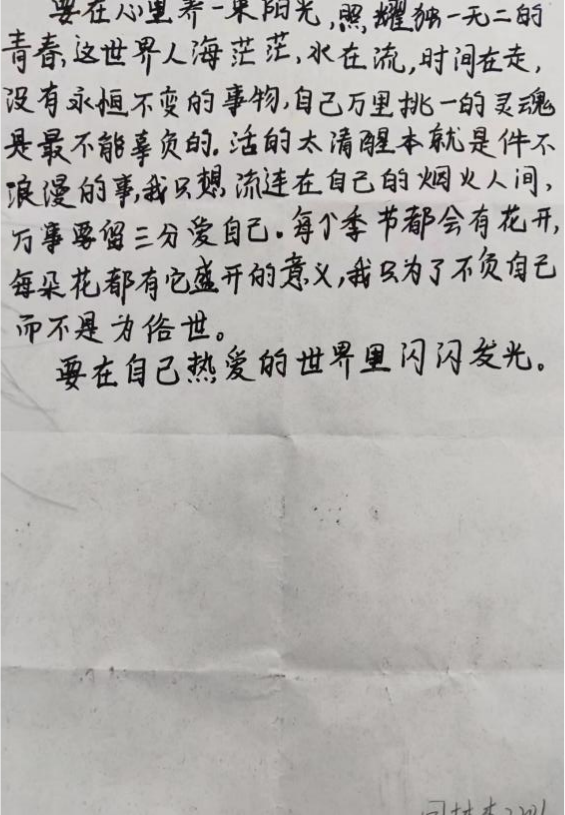 要在心里养一束阳光,照耀独一无二的
青春,这世界人海茫茫,水在流,时间在走,
没有永恒不变的事物,自己万里挑一的灵魂
是最不能辜负的。活的太清醒本就是件不
浪漫的事,我只想流连在自己的烟火人间,
万事要留三分爱自己。每个季节都会有花开,
每朵花都有它盛开的意义,我只为了不负自己
而不是为俗世。
要在自己热爱的世界里闪闪发光。